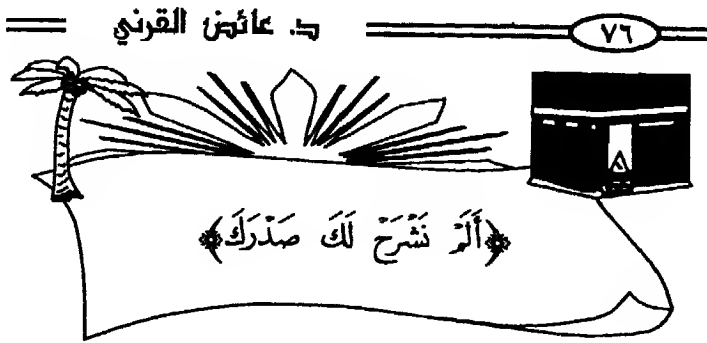 ٧٦ د. عائض القرني
﴿أَلَمْ نَشْرَحْ لَكَ صَدْرَكَ﴾